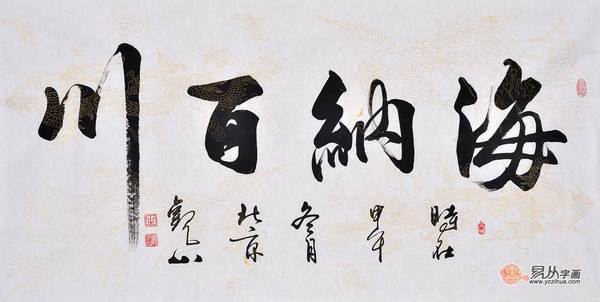 海納百川
時在
甲午
冬月
北京
觀山
易从
易从字画
www.yczihua.com